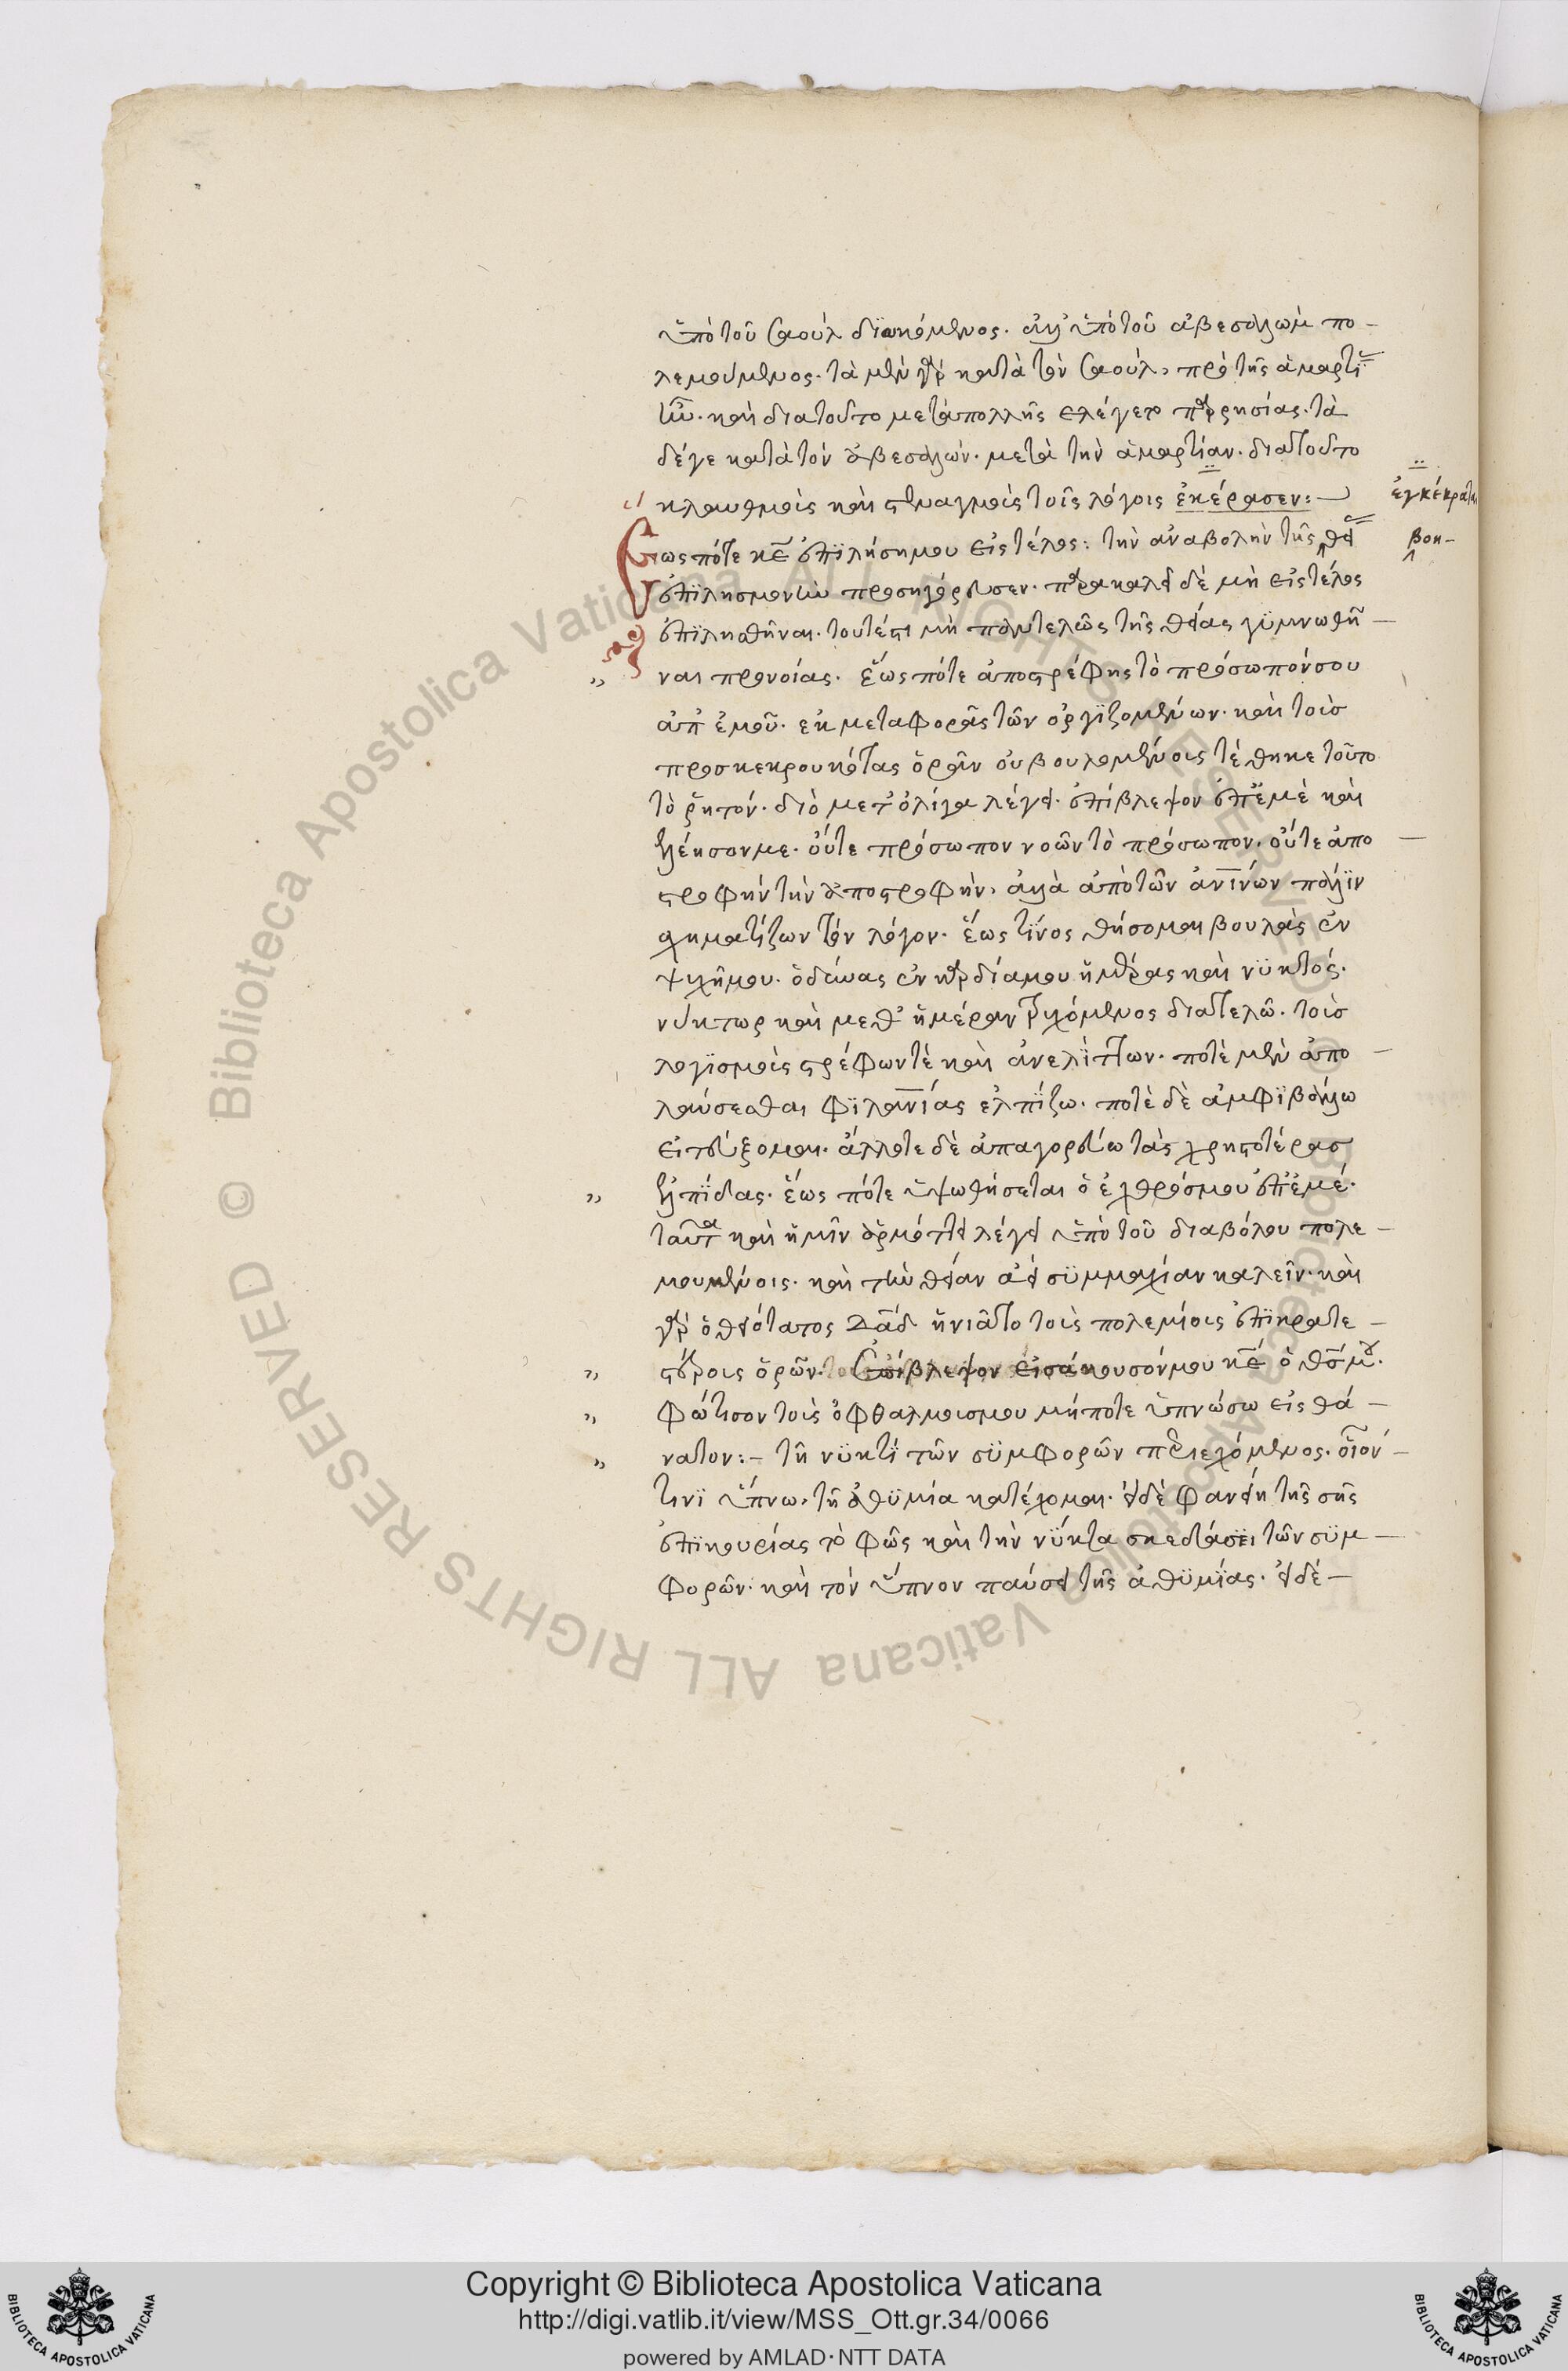 ὑπὸ τοῦ σαοὺλ διωκόμενος. ἀλλ' ὑπὸ τοῦ ἀβεσαλὼμ πο-
λεμούμενος. τὰ μὲν γὰρ κατὰ τὸν σαοὺλ, πρὸ τῆς ἁμαρτί
ἦν. καὶ διατοῦτο μετὰ πολλῆς ελέγετο παρρησίας. τὰ
δέγε κατὰ τὸν ἀβεσαλών. μετὰ τὴν ἁμαρτίαν. διατοῦτο
κλαυθμοῖς καὶ στεναγμοῖς τοῖς λόγοις ἐκέρασεν:—
ἐγκέκρατ
Ἕως πότε κε ἐπιλήσημου εἰς τέλος: τὴν ἀναβολὴν τῆς θεί
βοη-
ἐπιλησμονὴν προσηγόρευσεν. παρακαλεῖ δὲ μὴ εἰς τέλος
ἐπιλησθῆναι. τουτέστι μὴ παντελῶς τῆς θείας γυμνωθῆ-
ναι προνοίας. ἕως πότε ἀποστρέφης τὸ πρόσωπόνσου
ἀπ' ἐμοῦ. εκ μεταφορᾶς τῶν οργιζομένων. καὶ τοὺσ
προσκεκρουκότας ὁρᾶν ου βουλομένοις τέθηκε τοῦτο
τὸ ῥητόν. διὸ μετ' ὀλίγα λέγει. ἐπίβλεψον ἐπ' ἐμὲ καὶ
ἐλέησονμε. οὔτε πρόσωπον νοῶν τὸ πρόσωπον. οὔτε ἀπο-
στροφήν τὴν ἀποστροφὴν, ἀλλὰ ἀπὸ τῶν ἀνίνων πάλιν
σχηματίζων τὸν λόγον. ἕως τίνος θήσομαι βουλὰς ἐν
ψυχῆμου. ὀδύνας ἐν καρδίαμου ἡμέρας καὶ νυκτός.
νύκτωρ καὶ μεθ' ἡμέραν τρυχόμενος διατελῶ. τοὺσ
λογισμοὺς στρέφωντὲ καὶ ἀνελίττων. ποτὲ μὲν ἀπο-
λαύσεσθαι φιλανίας ελπίζω. ποτὲ δὲ ἀμφιβάλλω
ει τεύξομαι. ἄλλοτε δὲ ἀπαγορεύω τὰς χρηστοτέρασ
ἐλπίδας. ἕως πότε ὑψωθήσεται ὁ ἐχθρόσμου ἐπ' ἐμέ.
ταῦτα καὶ ἡμῖν ἁρμόττει λέγειν ὑπὸ τοῦ διαβόλου πολε-
μουμένοις. καὶ τὴν θείαν ἀεὶ συμμαχίαν καλεῖν. καὶ
γὰρ ὁ θειότατος δαδ ἠνιᾶτο τοὺς πολεμίους ἐπικρατε-
στέρους ὁρῶν. Ἐπίβλεψον εἰσάκουσόνμου κε ὁ θσ μου.
φώτισον τοὺς ὀφθαλμούσμου μήποτε ὑπνώσω εἰς θά-
νατον:— τῆ νυκτὶ τῶν συμφορῶν περιεχόμενος. οἷον
τινὶ ὕπνω, τῆ ἀθυμία κατέχομαι. ει δὲ φανείη τῆς σῆς
ἐπικουρίας τὸ φῶς καὶ τὴν νύκτα σκεδάσει τῶν συμ-
φορῶν. καὶ τὸν ὕπνον παύσει τῆς ἀθυμίας. ει δέ—
Copyright © Biblioteca Apostolica Vaticana
http://digi.vatlib.it/view/MSS_Ott.gr.34/0066
powered by AMLAD·NTT DATA
BIBLIOTECA APOSTOLICA VATICANA
BIBLIOTECA APOSTOLICA VATICANA
© Biblioteca Apostolica Vaticana ALL RIGHTS RESERVED
© Biblioteca Apostolica Vaticana ALL RIGHTS RESERVED